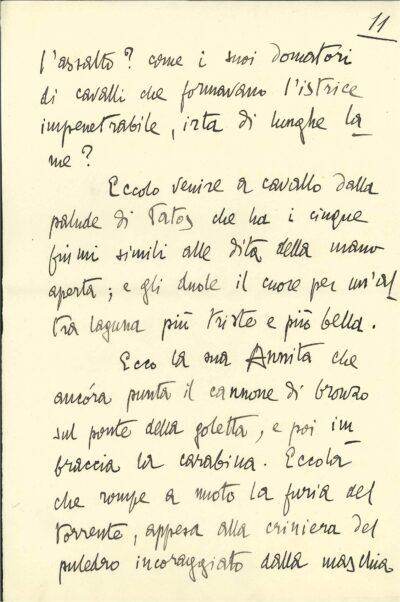 11
l'assalto? come i suoi domatori
di cavalli che formavano l'istrice
impenetrabile, irta di lunghe la
me?
Eccolo venire a cavallo dalla
palude di Patos che ha i cinque
fiumi simili alle dita della mano
aperta; e gli duole il cuore per un'al
tra laguna più triste e più bella.
Ecco la sua Annita che
ancóra punta il cannone di bronzo
sul ponte della goletta, e poi im
braccia la carabina. Eccola
che rompe a nuoto la furia del
torrente, appesa alla criniera del
puledro incoraggiato dalla maschia